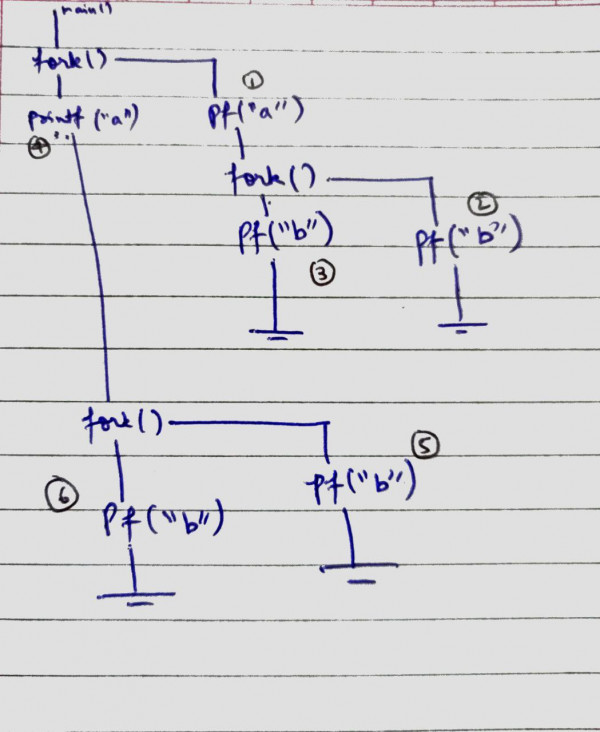 main()
fork()
①
printf ("a")
pf("a")
④
fork()
②
pf("b")
pf("b")
③
fork()
⑤
pf("b")
⑥
pf("b")